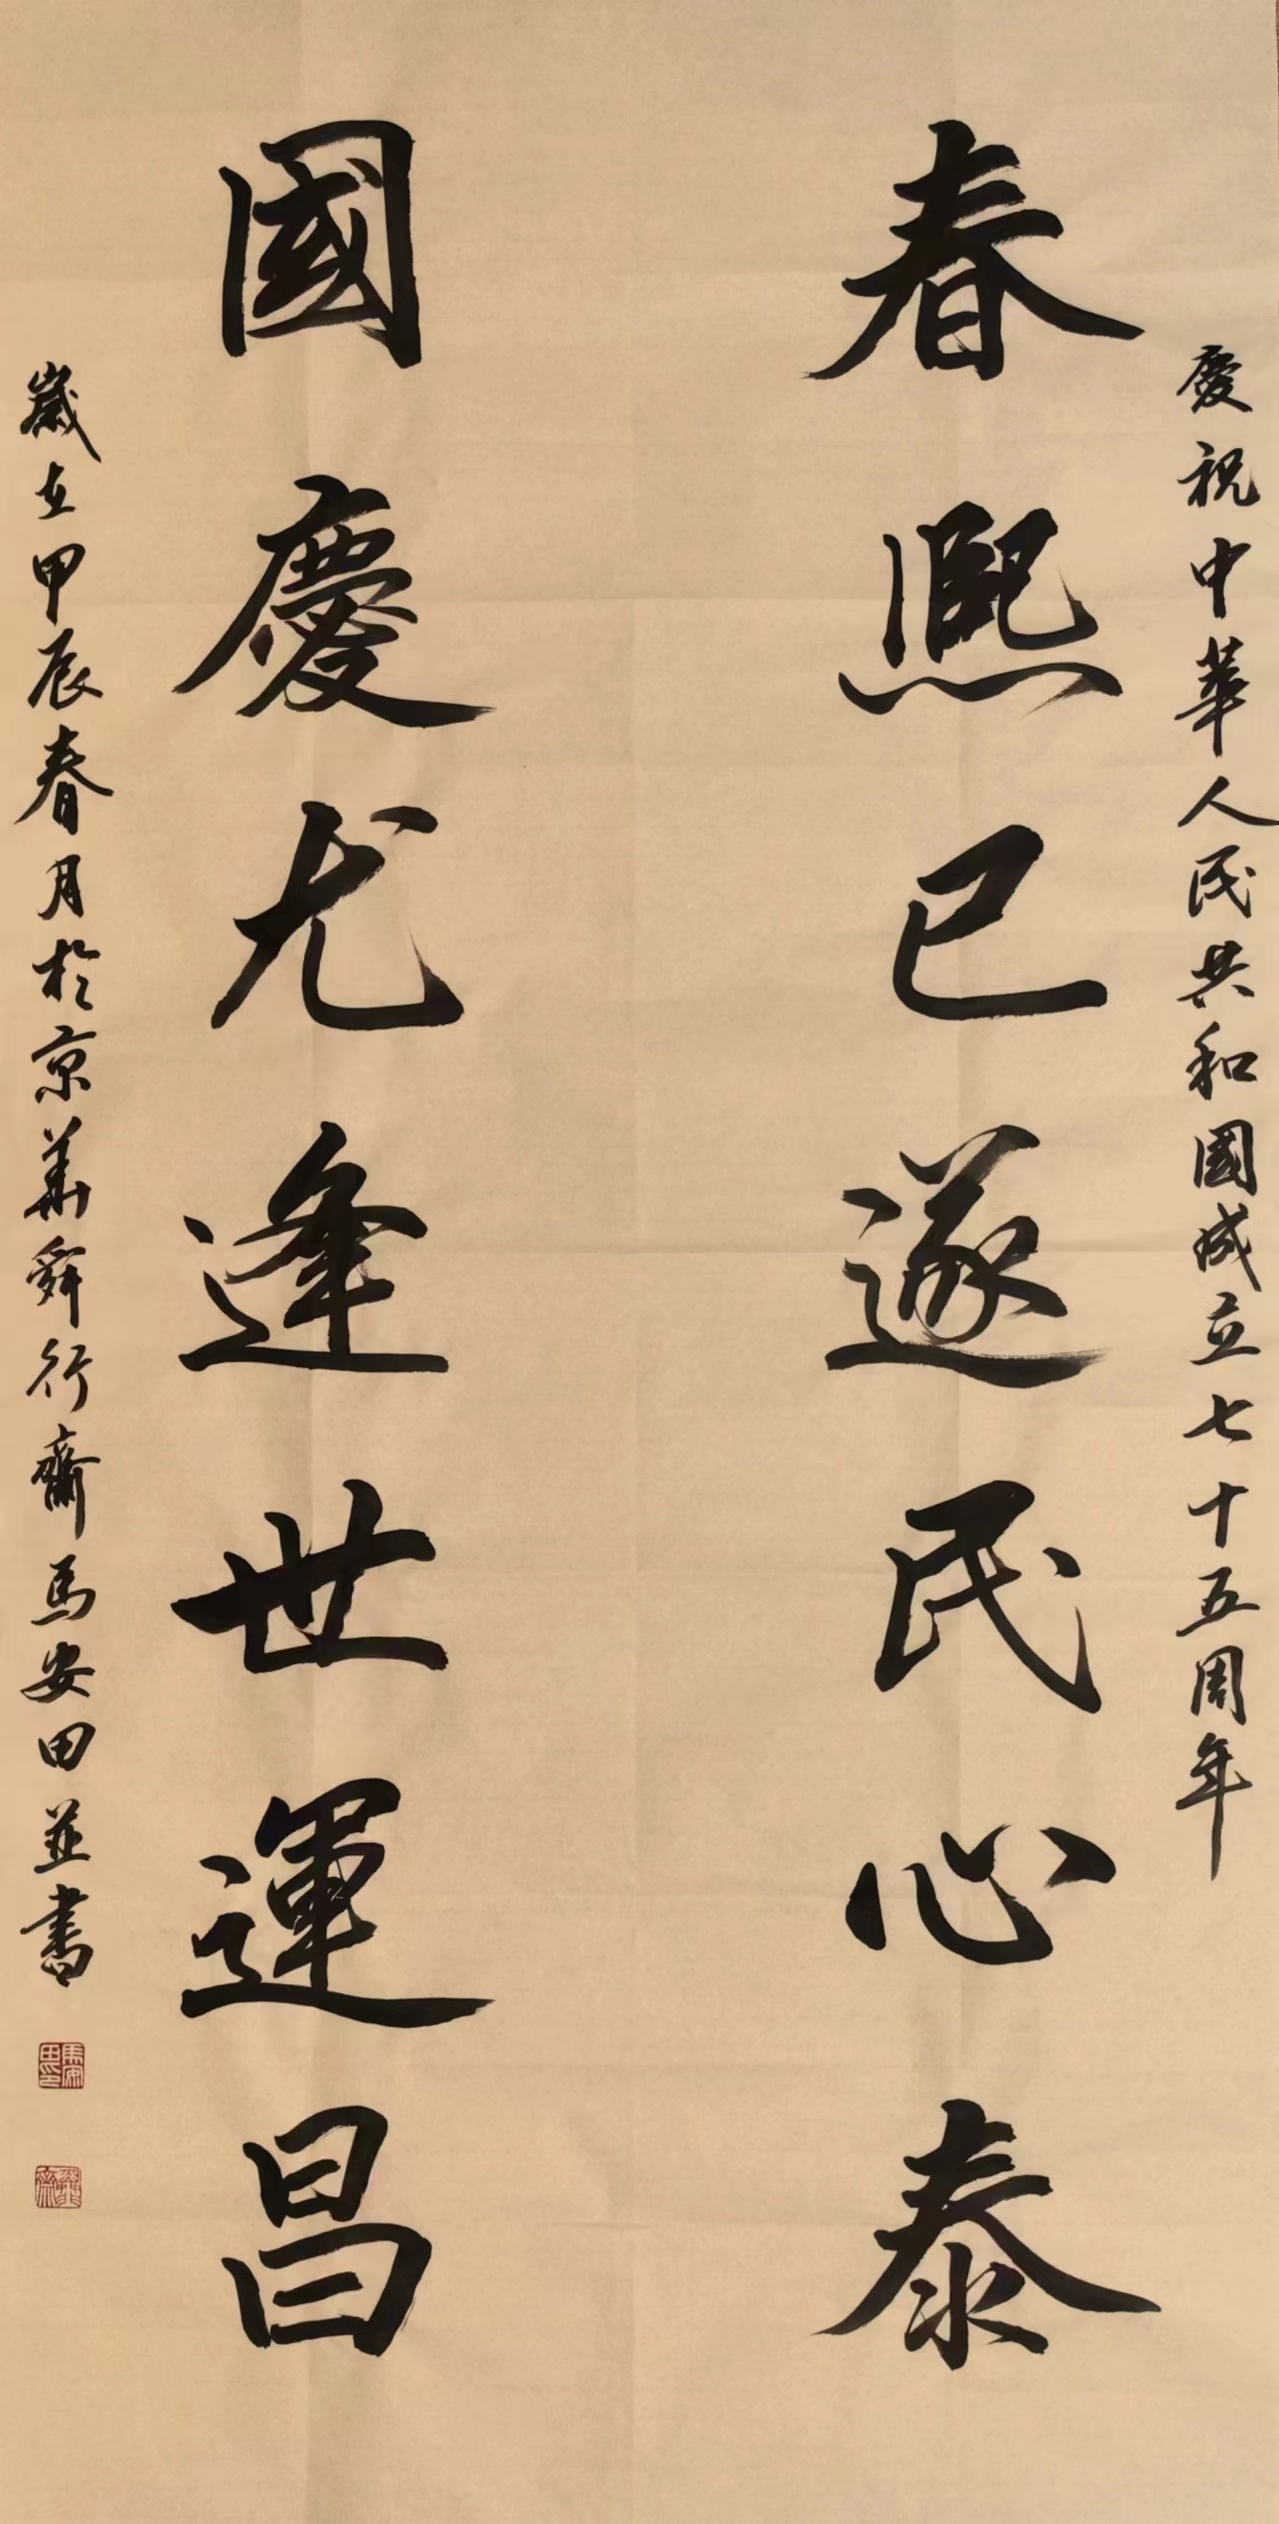 慶祝中華人民共和國成立七十五周年
春熙已遂民心泰
國慶尤逢世運昌
歲在甲辰春月於京華舜行齋馬安田並書
馬安田印